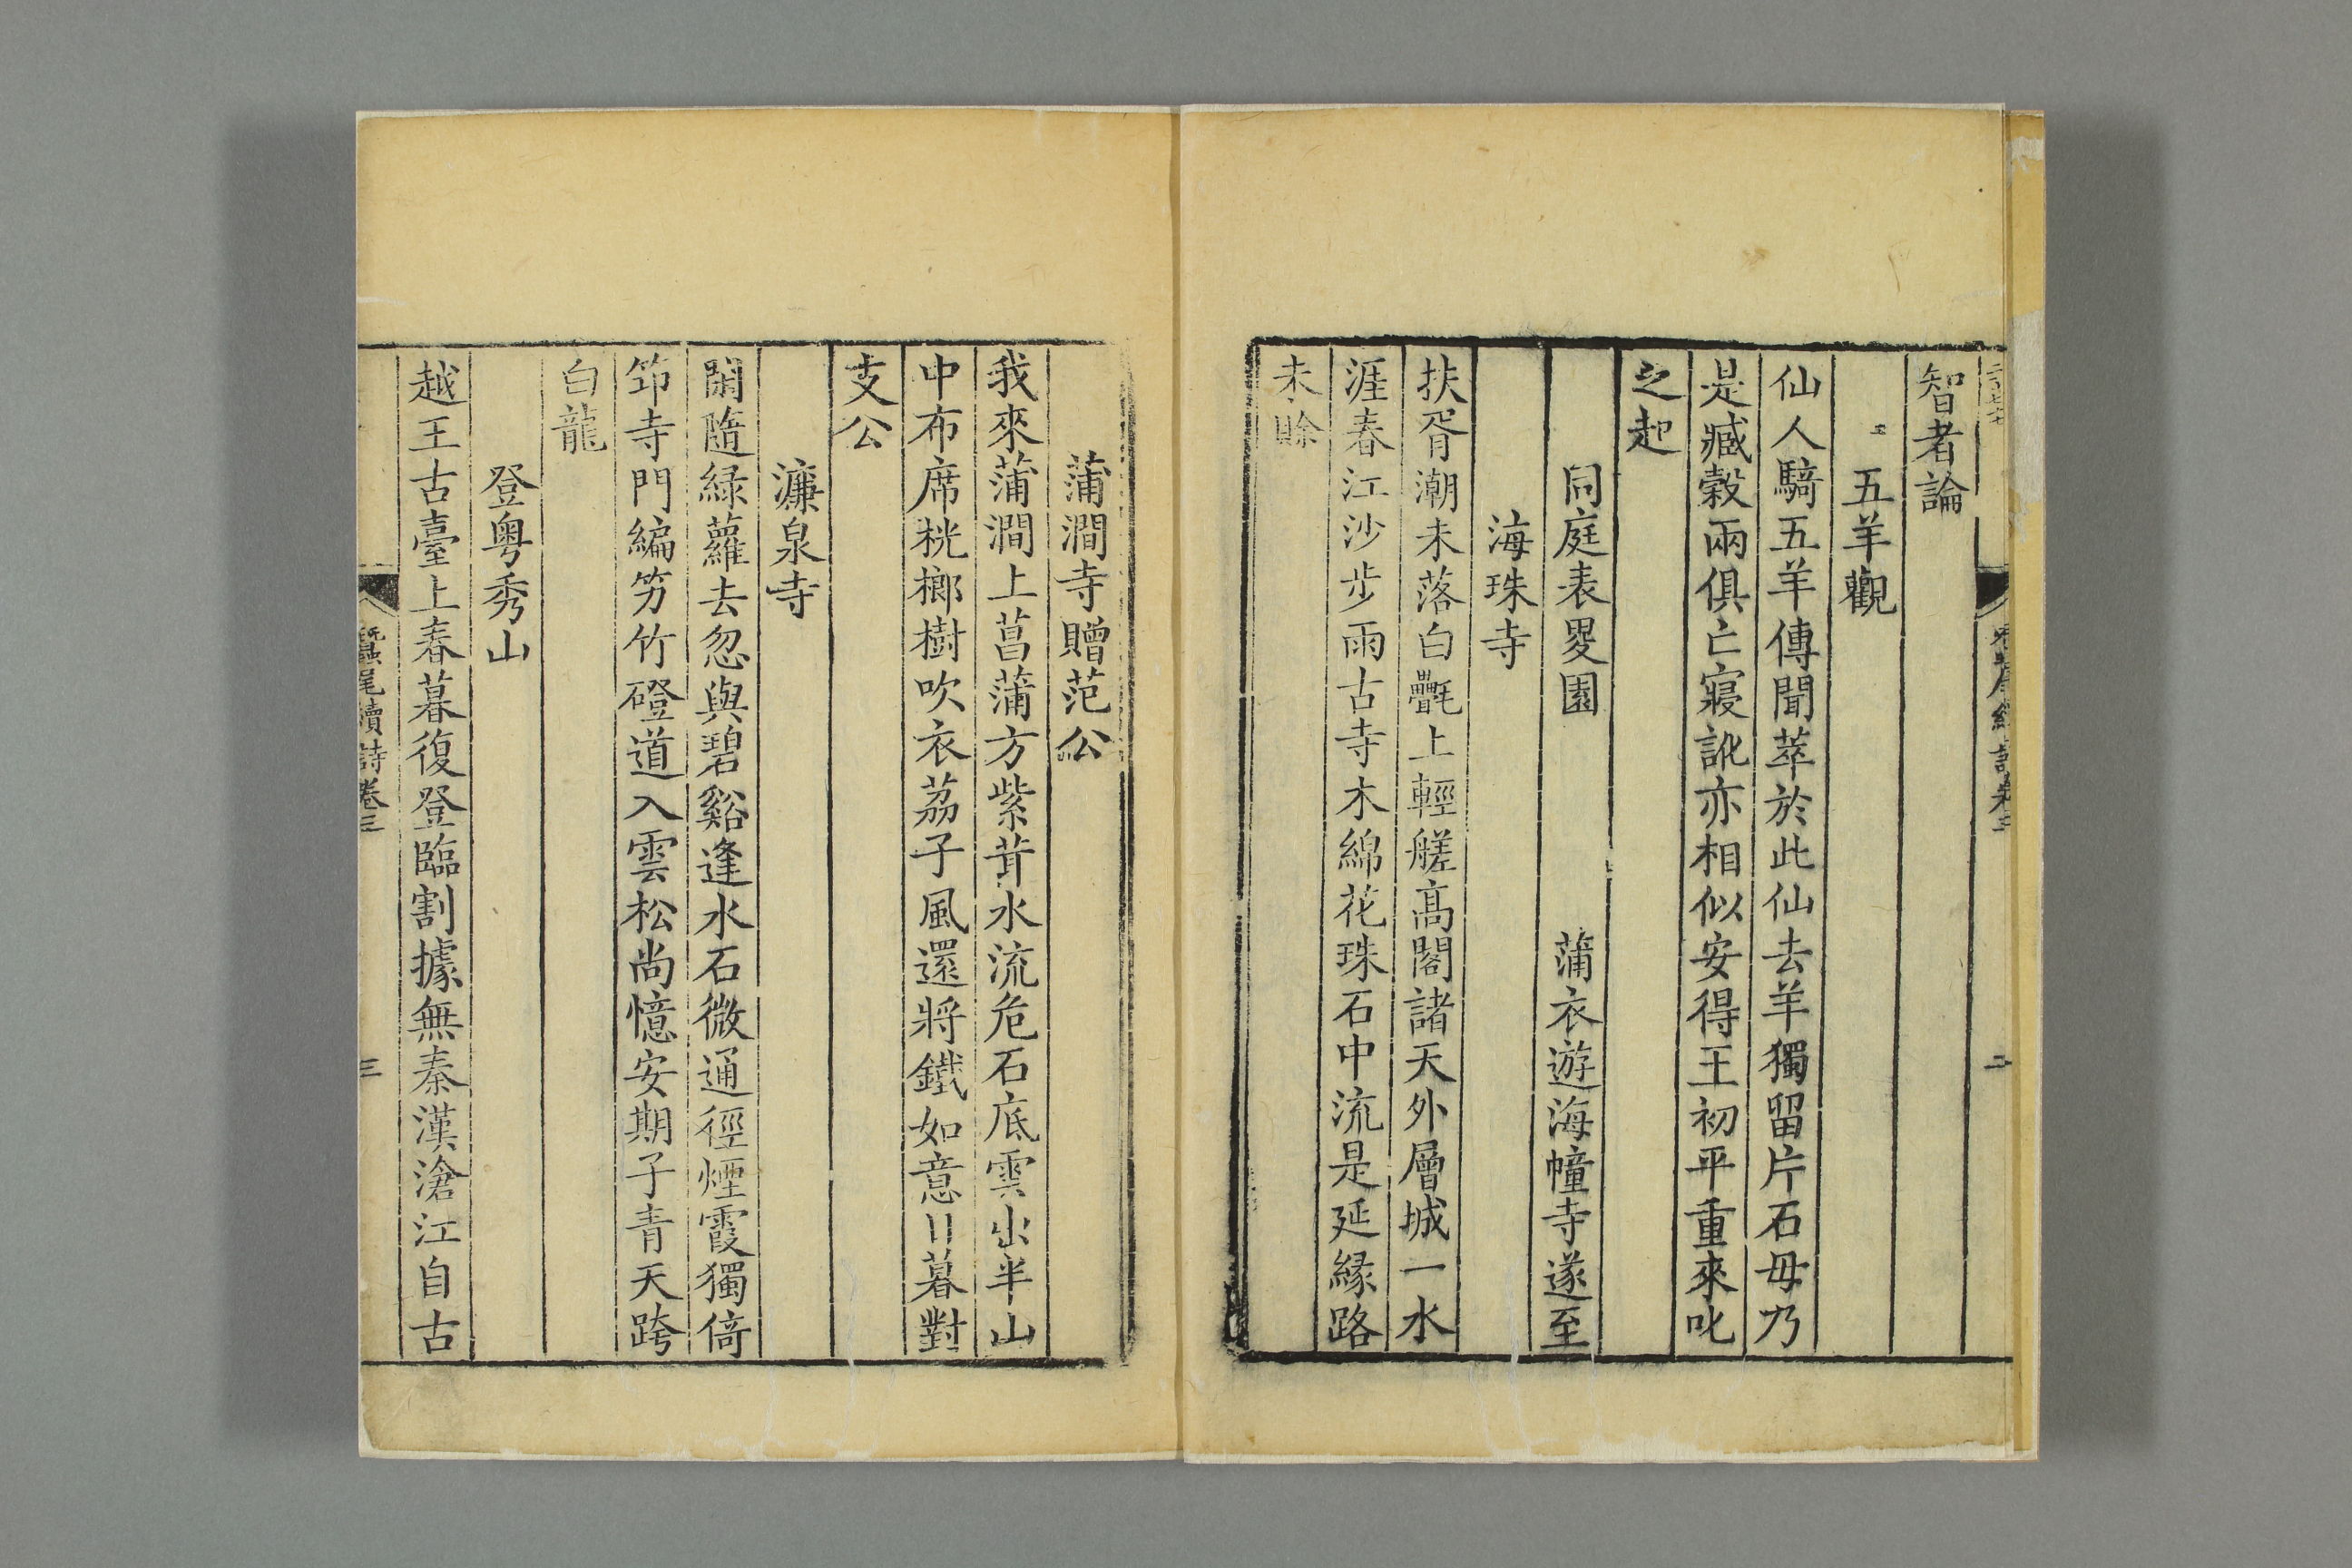 智者論
五羊觀
仙人騎五羊傳聞萃於此仙去羊獨留片石毋乃
是臧穀兩俱亡寢訛亦相似安得王初平重來叱
之起
同庭表罗園 蒲衣遊海幢寺遂至
海珠寺
扶胥潮未落白氎上輕艖高閣諸天外層城一水
涯春江沙步雨古寺木綿花珠石中流是延緣路
未賒
蒲澗寺贈范公
我來蒲澗上菖蒲方紫茸水流危石底雲出半山
中布席桄榔樹吹衣荔子風還將鐵如意日暮對
支公
濂泉寺
閑隨綠蘿去忽與碧谿逢水石微通徑煙霞獨倚
笻寺門編竻竹磴道入雲松尚憶安期子青天跨
白龍
登粵秀山
越王古臺上春暮復登臨割據無秦漢滄江自古
蠶尾續詩卷三
三